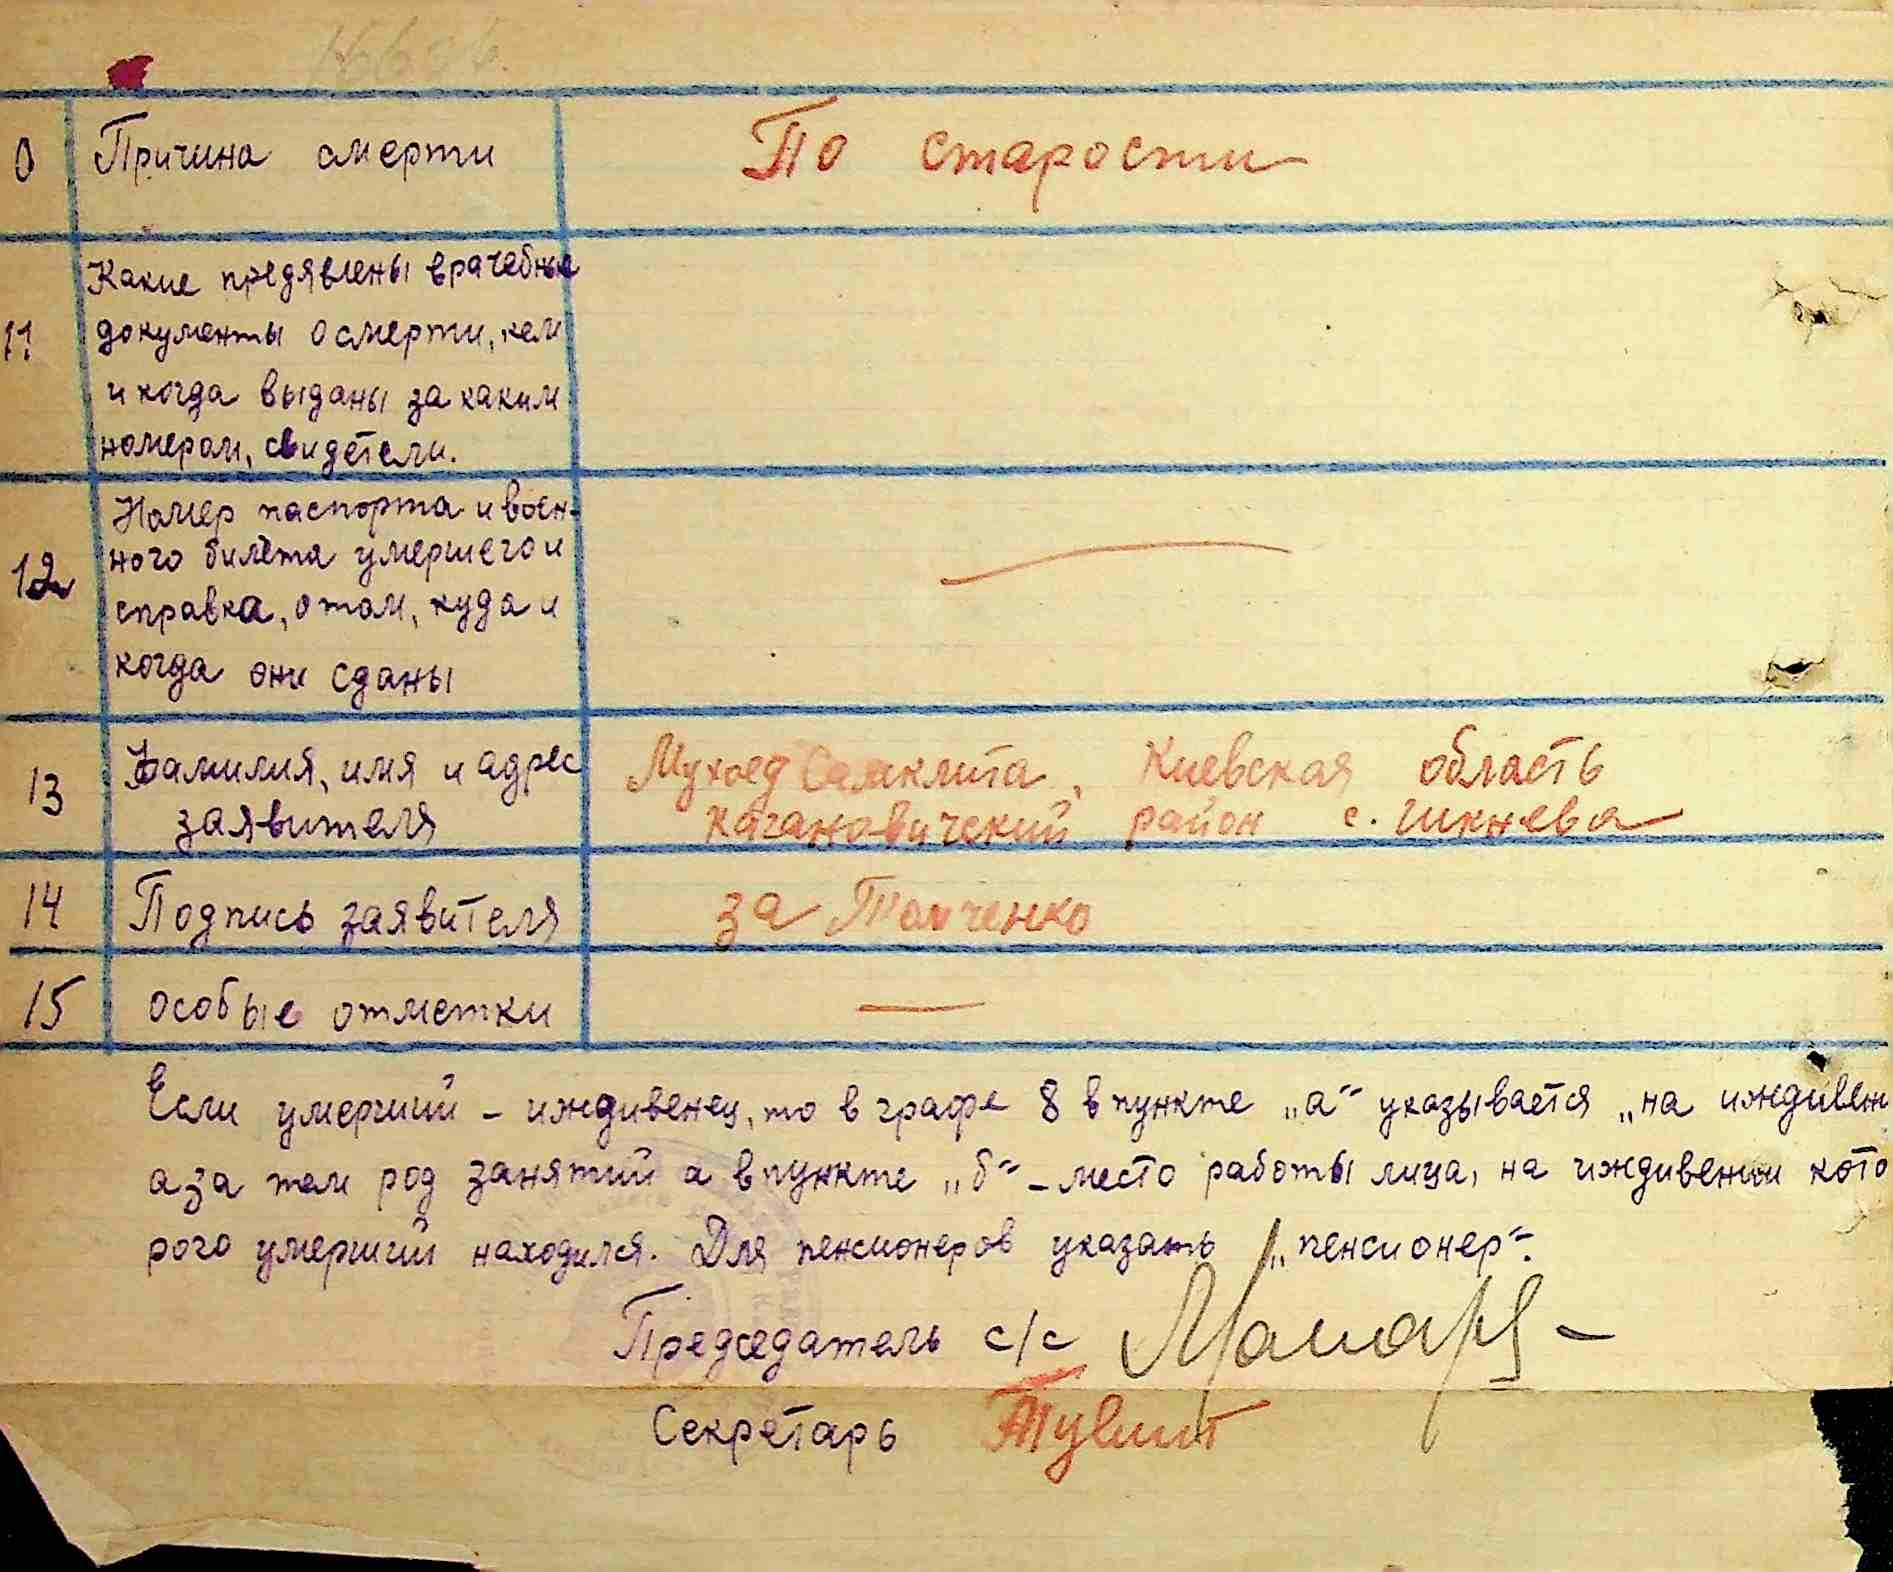 0 Причина смерти По старости
Какие предявлены врачебные
11 документы о смерти, кем
и когда выданы за каким
номером, свидетели.
Номер паспорта и воен-
12 ного билета умершего и
справка, о том, куда и
когда они сданы
13 Фамилия, имя и адрес Мухоед Киевская область
заявителя Кагановический район с.
14 Подпись заявителя за Томченко
15 особые отметки —
Если умерший – иждивенец, то в графе 8 в пункте „а“ указывается „на иждивен
а за тем род занятий а в пункте „б“ – место работы лица, на иждивении кото
рого умерший находился. Для пенсионеров указать „пенсионер“.
Председатель с/с
Секретарь